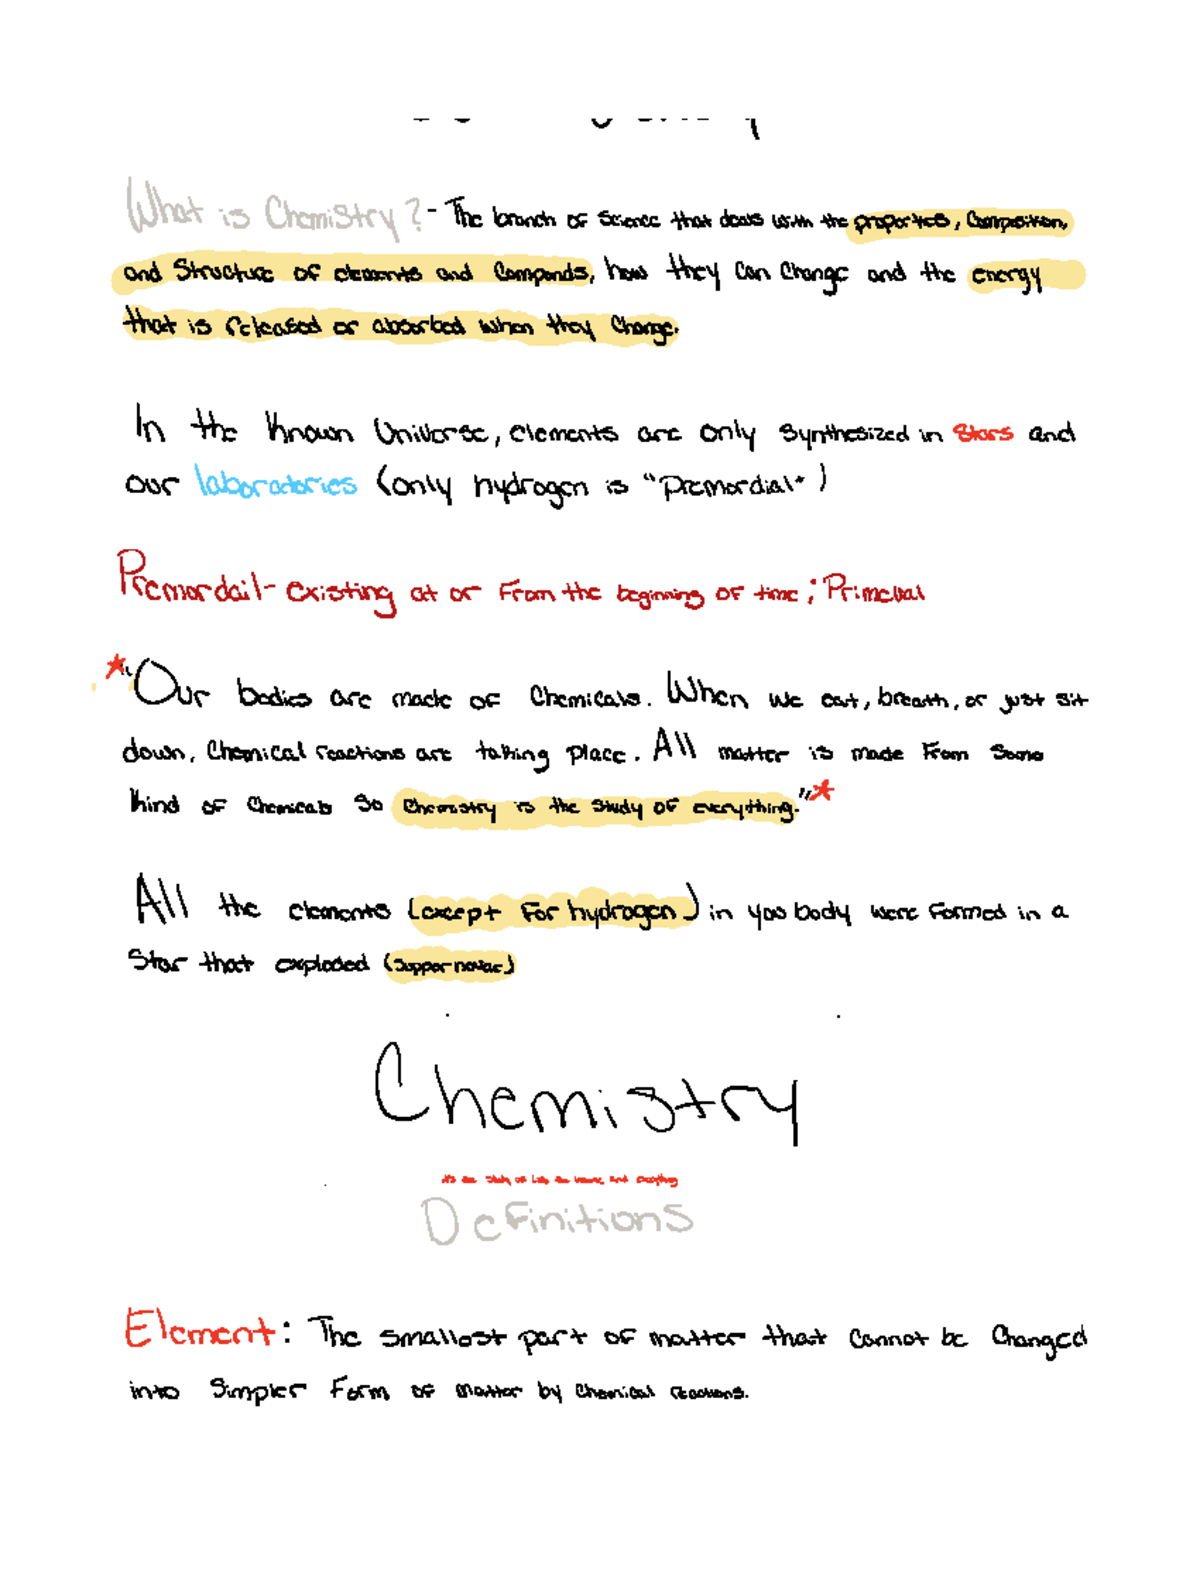 What is Chemistry? - The branch of Science that deals with the properties, Composition,
and Structure of elements and Componds, how they Can Change and the energy
that is released or absorbed when they Change.
In the Known Universe, elements are only synthesized in Stars and
our laboratories (only hydrogen is "Premordial")
Premordail - existing at or from the beginning of time; Primeval
*"Our bodies are made of Chemicals. When we eat, breath, or just sit
down, Chemical reactions are taking place. All matter is made from Some
kind of Chemicals So Chemistry is the study of everything."*
All the elements (except for hydrogen) in you body were formed in a
Star that exploded (Suppernovac)
Chemistry
Definitions
Element: The smallest part of matter that Cannot be Changed
into Simpler Form of matter by Chemical reactions.